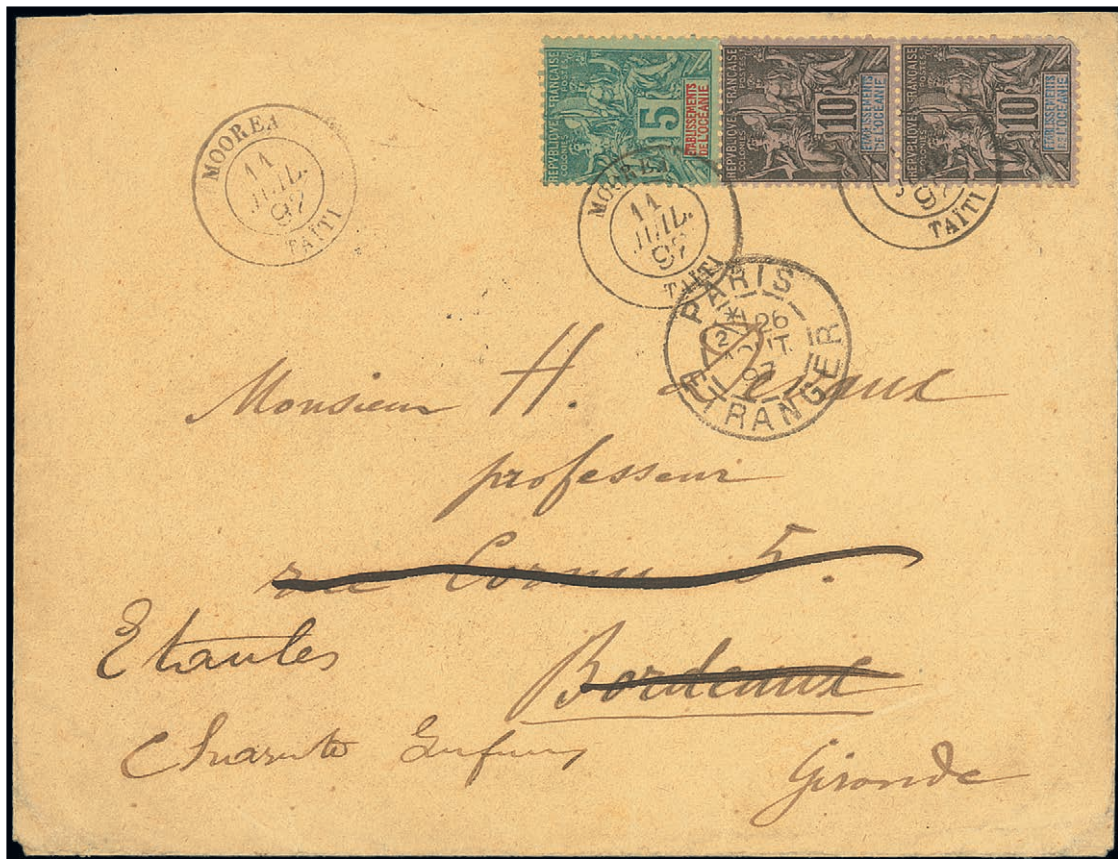 RÉPUBLIQUE FRANÇAISE
COLONIES POSTES
5
ÉTABLISSEMENTS
DE L'OCÉANIE
RÉPUBLIQUE FRANÇAISE
COLONIES POSTES
10
ÉTABLISSEMENTS
DE L'OCÉANIE
RÉPUBLIQUE FRANÇAISE
10
ÉTABLISSEMENTS
DE L'OCÉANIE
MOOREA
11
JUIL.
97
TAITI
MOOREA
11
JUIL.
97
TAITI
97
TAITI
PARIS
26
AOUT
97
ETRANGER
Monsieur H.
professeur
rue 5.
Etaules
Bordeaux
Charente
Gironde